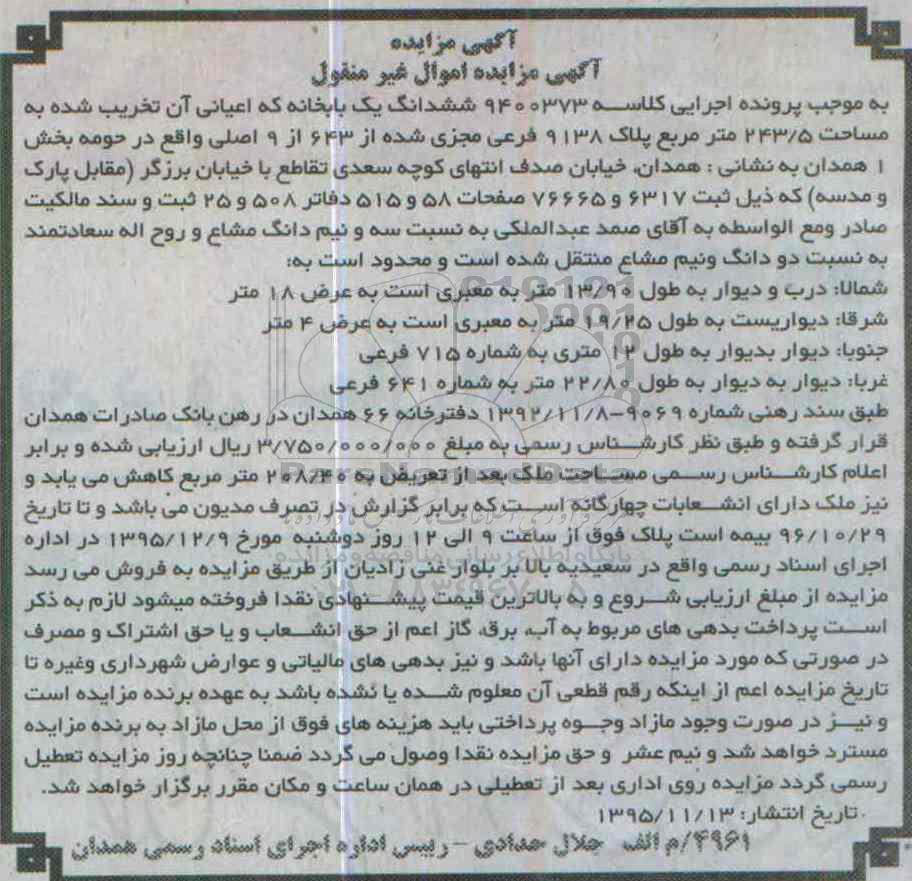 آگهی مزایده
آگهی مزایده اموال غیر منقول
به موجب پرونده اجرایی کلاسه ۹۴۰۰۳۷۳ ششدانگ یک بابخانه که اعیانی آن تخریب شده به
مساحت ۲۴۳/۵ متر مربع پلاک ۹۱۳۸ فرعی مجزی شده از ۶۴۳ از ۹ اصلی واقع در حومه بخش
۱ همدان به نشانی : همدان، خیابان صدف انتهای کوچه سعدی تقاطع با خیابان برزگر (مقابل پارک
و مدسه) که ذیل ثبت ۶۳۱۷ و ۷۶۶۶۵ صفحات ۵۸ و ۵۱۵ دفاتر ۵۰۸ و ۲۵ ثبت و سند مالکیت
صادر ومع الواسطه به آقای صمد عبدالملکی به نسبت سه و نیم دانگ مشاع و روح اله سعادتمند
به نسبت دو دانگ ونیم مشاع منتقل شده است و محدود است به:
شمالا: درب و دیوار به طول ۱۳/۹۰ متر به معبری است به عرض ۱۸ متر
شرقا: دیواریست به طول ۱۹/۲۵ متر به معبری است به عرض ۴ متر
جنوبا: دیوار بدیوار به طول ۱۲ متری به شماره ۷۱۵ فرعی
غربا: دیوار به دیوار به طول ۲۲/۸۰ متر به شماره ۶۴۱ فرعی
طبق سند رهنی شماره ۹۰۶۹-۱۳۹۲/۱۱/۸ دفترخانه ۶۶ همدان در رهن بانک صادرات همدان
قرار گرفته و طبق نظر کارشناس رسمی به مبلغ ۳/۷۵۰/۰۰۰/۰۰۰ ریال ارزیابی شده و برابر
اعلام کارشناس رسمی مساحت ملک بعد از تعریض به ۲۰۸/۴۰ متر مربع کاهش می یابد و
نیز ملک دارای انشعابات چهارگانه است که برابر گزارش در تصرف مدیون می باشد و تا تاریخ
۹۶/۱۰/۲۹ بیمه است پلاک فوق از ساعت ۹ الی ۱۲ روز دوشنبه مورخ ۱۳۹۵/۱۲/۹ در اداره
اجرای اسناد رسمی واقع در سعیدیه بالا بر بلوار غنی زادیان از طریق مزایده به فروش می رسد
مزایده از مبلغ ارزیابی شروع و به بالاترین قیمت پیشنهادی نقدا فروخته میشود لازم به ذکر
است پرداخت بدهی های مربوط به آب، برق، گاز اعم از حق انشعاب و یا حق اشتراک و مصرف
در صورتی که مورد مزایده دارای آنها باشد و نیز بدهی های مالیاتی و عوارض شهرداری وغیره تا
تاریخ مزایده اعم از اینکه رقم قطعی آن معلوم شده یا نشده باشد به عهده برنده مزایده است
و نیز در صورت وجود مازاد وجوه پرداختی باید هزینه های فوق از محل مازاد به برنده مزایده
مسترد خواهد شد و نیم عشر و حق مزایده نقدا وصول می گردد ضمنا چنانچه روز مزایده تعطیل
رسمی گردد مزایده روی اداری بعد از تعطیلی در همان ساعت و مکان مقرر برگزار خواهد شد.
تاریخ انتشار: ۱۳۹۵/۱۱/۱۳
۴۹۶۱/م الف جلال حدادی - رییس اداره اجرای اسناد رسمی همدان